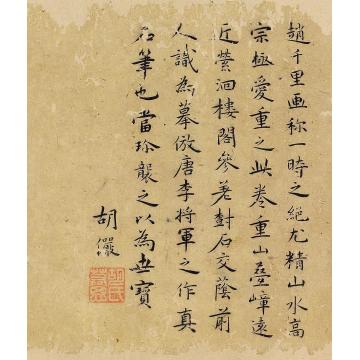 趙千里画称一時之絶尤精山水高
宗極愛重之此卷重山疊嶂遠
近縈洄樓閣參差封石交蔭前
人識為摹倣唐李將軍之作真
名筆也當珍襲之以為世寶
胡儼